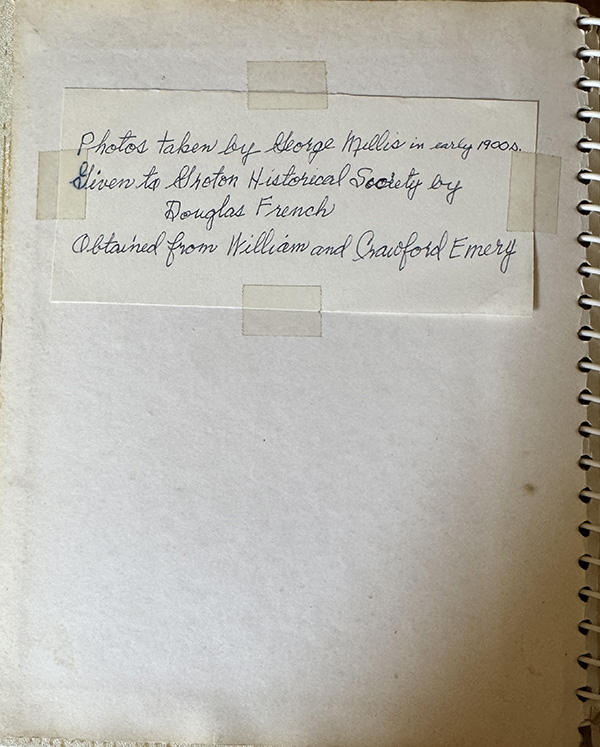 Photos taken by George Millis in early 1900s.
Given to Groton Historical Society by
Douglas French
Obtained from William and Crawford Emery